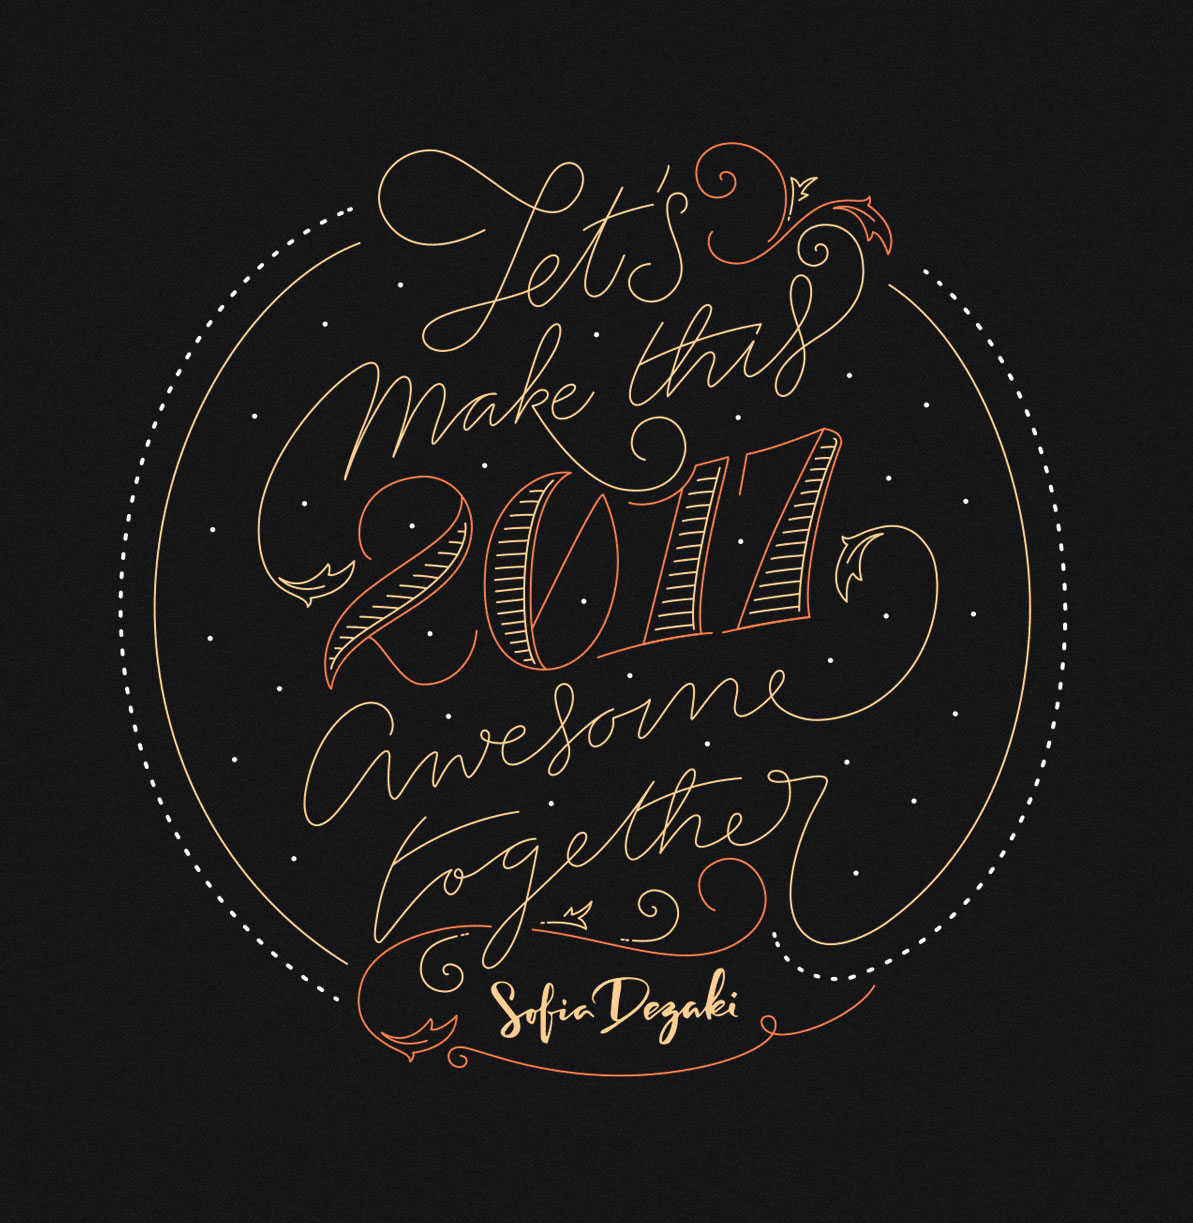 Let's
Make this
2017
Awesome
together
Sofia Dezaki